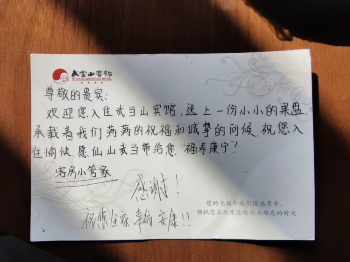 武当山宾馆
尊敬的贵宾:
欢迎您入住武当山宾馆,送上一份小小的果盘
承载着我们满满的祝福和诚挚的问候,祝您入
住愉快,愿仙山武当带给您 福寿康宁!
客房小管家
感谢!
祝您全家 幸福 安康!!
您的光临令我们深感荣幸,